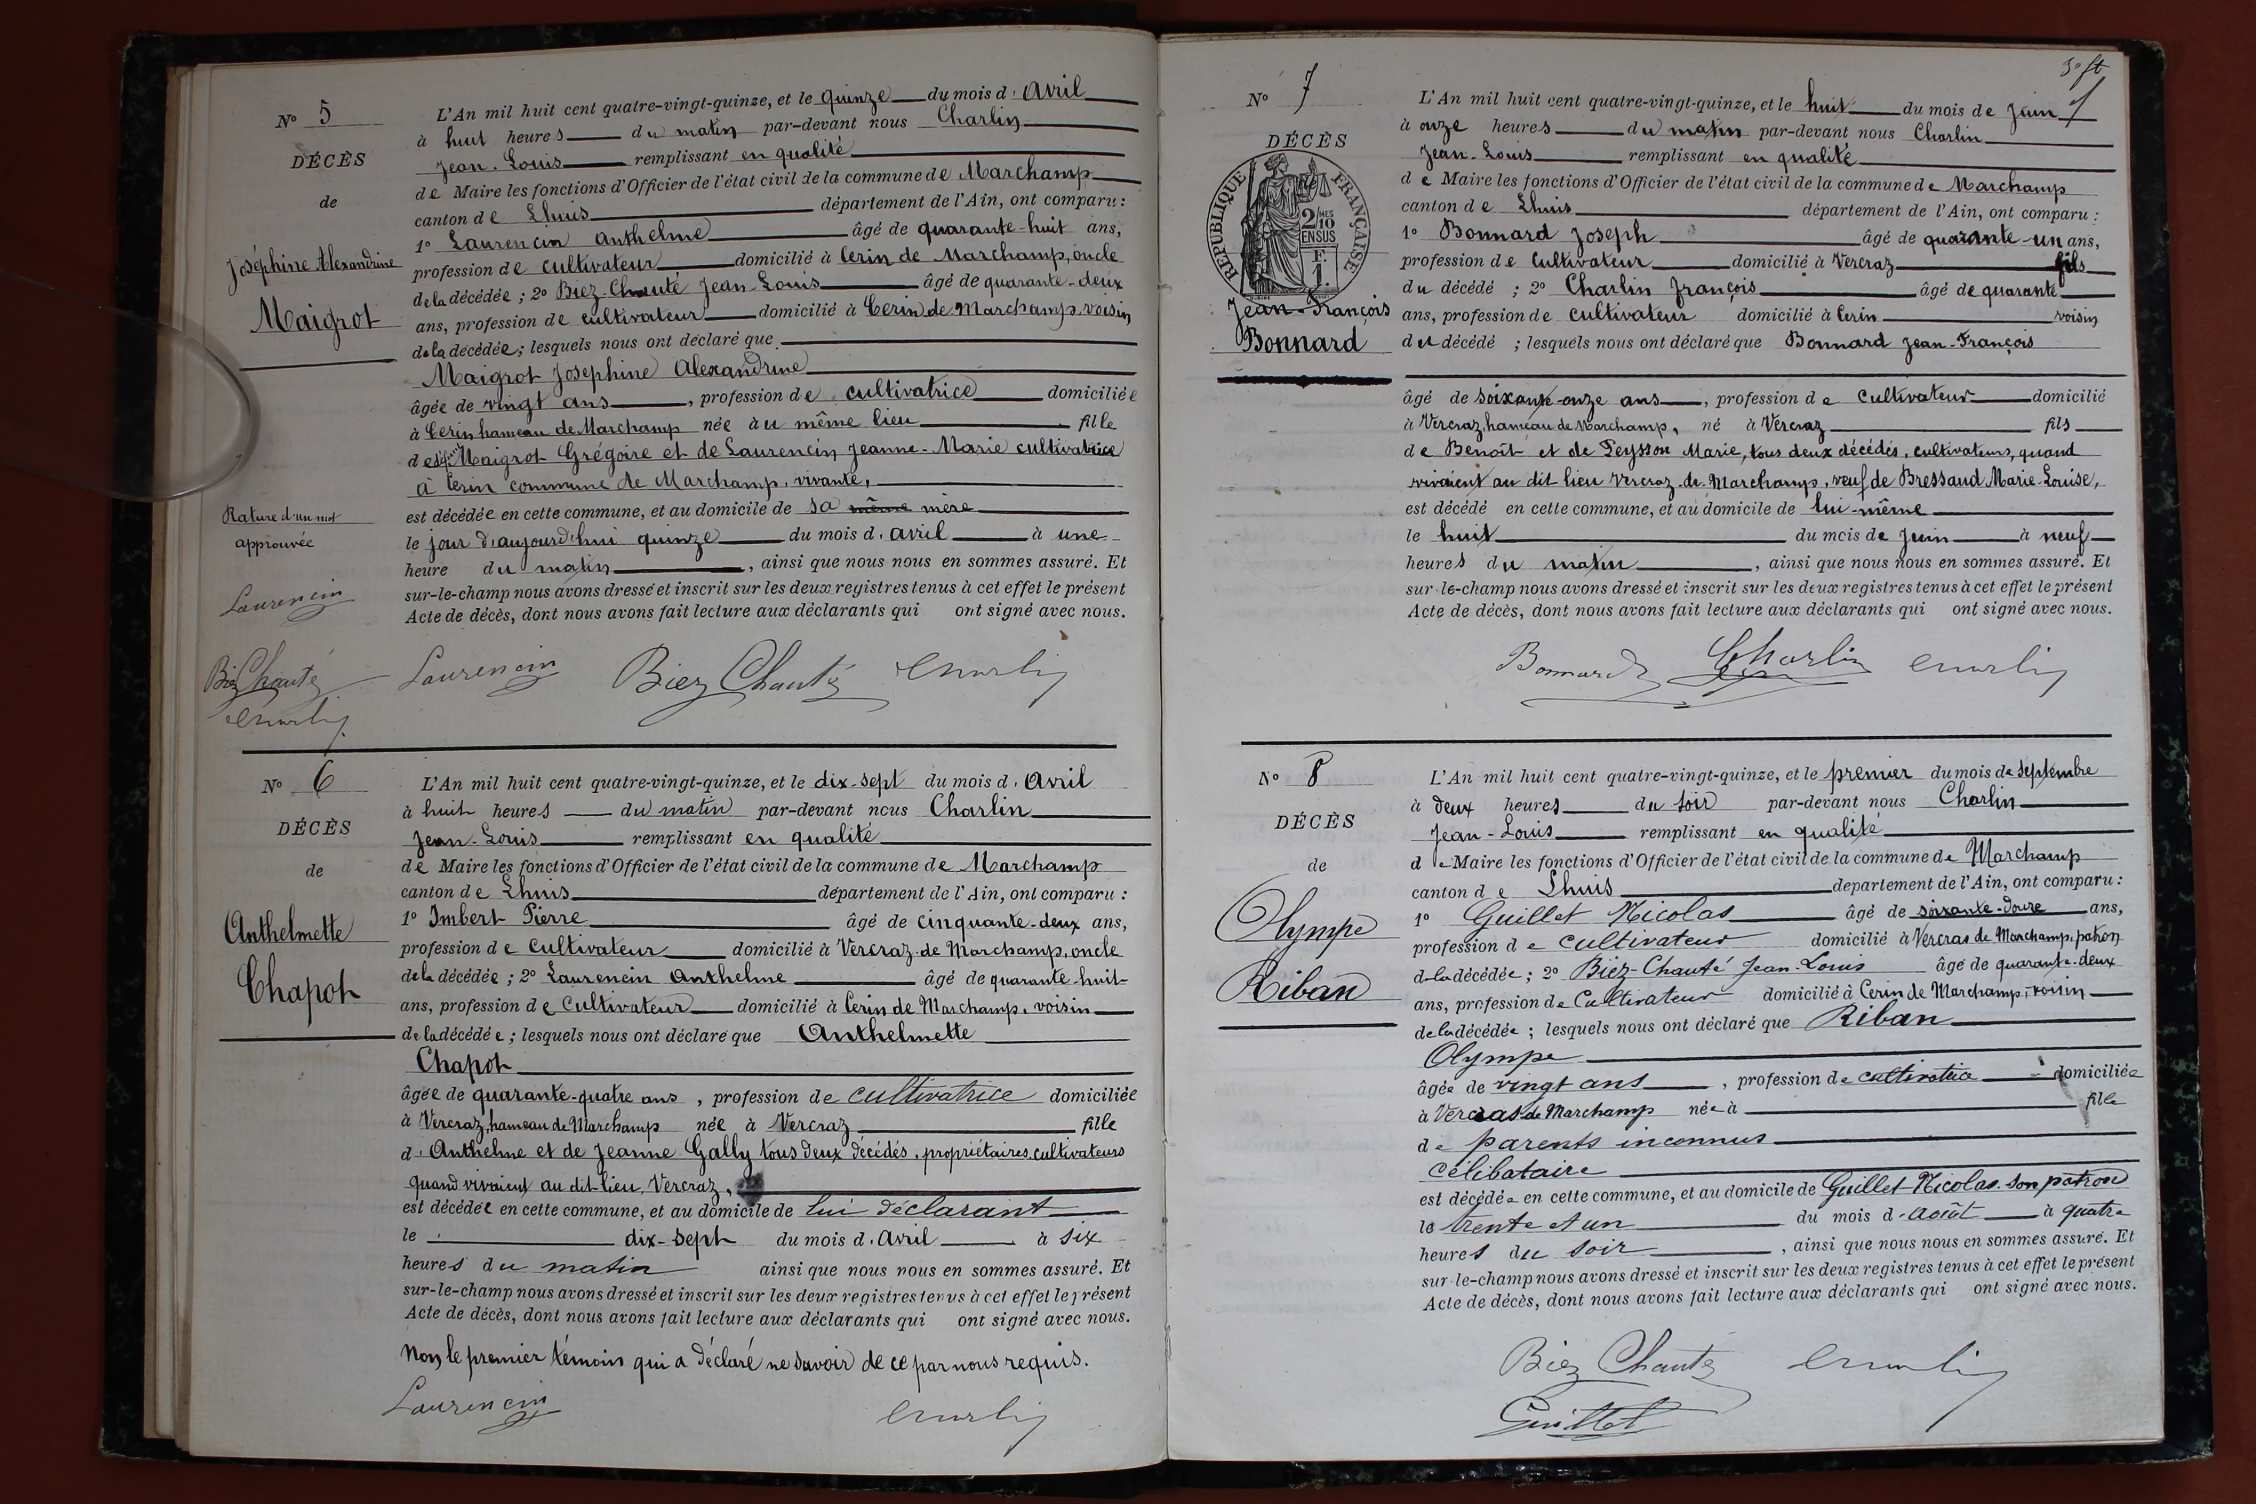 Nº 5
DÉCÈS
de
Joséphine Alexandrine
Maigrot
Rature d'un mot
approuvée
Laurencin
Biez Chauté
Charlin
L'An mil huit cent quatre-vingt-quinze, et le quinze du mois d' Avril
à huit heures du matin par-devant nous Charlin
Jean-Louis remplissant en qualité
de Maire les fonctions d'Officier de l'état civil de la commune de Marchamp
canton de Lhuis département de l'Ain, ont comparu :
1º Laurencin Anthelme âgé de quarante-huit ans,
profession de cultivateur domicilié à Cerin de Marchamp, oncle
de la décédée ; 2º Biez-Chauté Jean-Louis âgé de quarante-deux
ans, profession de cultivateur domicilié à Cerin de Marchamp voisin
de la décédée ; lesquels nous ont déclaré que
Maigrot Joséphine Alexandrine
âgée de vingt ans, profession de cultivatrice domiciliée
à Cerin hameau de Marchamp née au même lieu fille
de Maigrot Grégoire et de Laurencin Jeanne-Marie cultivatrice
à Cerin commune de Marchamp, vivante,
est décédée en cette commune, et au domicile de sa même mère
le jour d'aujourd'hui quinze du mois d' avril à une
heure du matin, ainsi que nous nous en sommes assuré. Et
sur-le-champ nous avons dressé et inscrit sur les deux registres tenus à cet effet le présent
Acte de décès, dont nous avons fait lecture aux déclarants qui ont signé avec nous.
Laurencin Biez Chauté Charlin
Nº 6
DÉCÈS
de
Anthelmette
Chapot
L'An mil huit cent quatre-vingt-quinze, et le dix-sept du mois d' Avril
à huit heures du matin par-devant nous Charlin
Jean-Louis remplissant en qualité
de Maire les fonctions d'Officier de l'état civil de la commune de Marchamp
canton de Lhuis département de l'Ain, ont comparu :
1º Imbert Pierre âgé de cinquante-deux ans,
profession de cultivateur domicilié à Vercraz de Marchamp, oncle
de la décédée ; 2º Laurencin Anthelme âgé de quarante-huit
ans, profession de Cultivateur domicilié à Cerin de Marchamp, voisin
de la décédée ; lesquels nous ont déclaré que Anthelmette
Chapot
âgée de quarante-quatre ans, profession de cultivatrice domiciliée
à Vercraz, hameau de Marchamp née à Vercraz fille
d' Anthelme et de Jeanne Gally tous deux décédés, propriétaires cultivateurs
quand vivaient au dit-lieu, Vercraz,
est décédée en cette commune, et au domicile de lui déclarant
le dix-sept du mois d' Avril à six
heures du matin ainsi que nous nous en sommes assuré. Et
sur-le-champ nous avons dressé et inscrit sur les deux registres tenus à cet effet le présent
Acte de décès, dont nous avons fait lecture aux déclarants qui ont signé avec nous.
Non le premier témoin qui a déclaré ne savoir de ce par nous requis.
Laurencin Charlin
Nº 7
DÉCÈS
RÉPUBLIQUE FRANÇAISE
2/10 MES
EN SUS
F.
1.
Jean-François
Bonnard
L'An mil huit cent quatre-vingt-quinze, et le huit du mois de Juin
à onze heures du matin par-devant nous Charlin
Jean-Louis remplissant en qualité
de Maire les fonctions d'Officier de l'état civil de la commune de Marchamp
canton de Lhuis département de l'Ain, ont comparu :
1º Bonnard Joseph âgé de quarante-un ans,
profession de cultivateur domicilié à Vercraz fils
du décédé ; 2º Charlin François âgé de quarante
ans, profession de cultivateur domicilié à Cerin voisin
du décédé ; lesquels nous ont déclaré que Bonnard Jean-François
âgé de soixante-onze ans, profession de cultivateur domicilié
à Vercraz, hameau de Marchamp, né à Vercraz fils
de Benoît et de Peysson Marie, tous deux décédés, cultivateurs, quand
vivaient au dit lieu Vercraz de Marchamp, veuf de Bressaud Marie-Louise,
est décédé en cette commune, et au domicile de lui-même
le huit du mois de Juin à neuf
heures du matin, ainsi que nous nous en sommes assuré. Et
sur-le-champ nous avons dressé et inscrit sur les deux registres tenus à cet effet le présent
Acte de décès, dont nous avons fait lecture aux déclarants qui ont signé avec nous.
Bonnard Charlin Charlin
Nº 8
DÉCÈS
de
Olympe
Riban
L'An mil huit cent quatre-vingt-quinze, et le premier du mois de septembre
à deux heures du soir par-devant nous Charlin
Jean-Louis remplissant en qualité
de Maire les fonctions d'Officier de l'état civil de la commune de Marchamp
canton de Lhuis département de l'Ain, ont comparu :
1º Guillet Nicolas âgé de soixante-douze ans,
profession de cultivateur domicilié à Vercras de Marchamp, patron
de la décédée ; 2º Biez-Chauté Jean-Louis âgé de quarante-deux
ans, profession de Cultivateur domicilié à Cerin de Marchamp, voisin
de la décédée ; lesquels nous ont déclaré que Riban
Olympe
âgée de vingt ans, profession de cultivatrice domiciliée
à Vercras de Marchamp née à fille
de parents inconnus
célibataire
est décédée en cette commune, et au domicile de Guillet Nicolas son patron
le trente et un du mois d' Août à quatre
heures du soir, ainsi que nous nous en sommes assuré. Et
sur-le-champ nous avons dressé et inscrit sur les deux registres tenus à cet effet le présent
Acte de décès, dont nous avons fait lecture aux déclarants qui ont signé avec nous.
Biez Chauté Charlin
Guillet